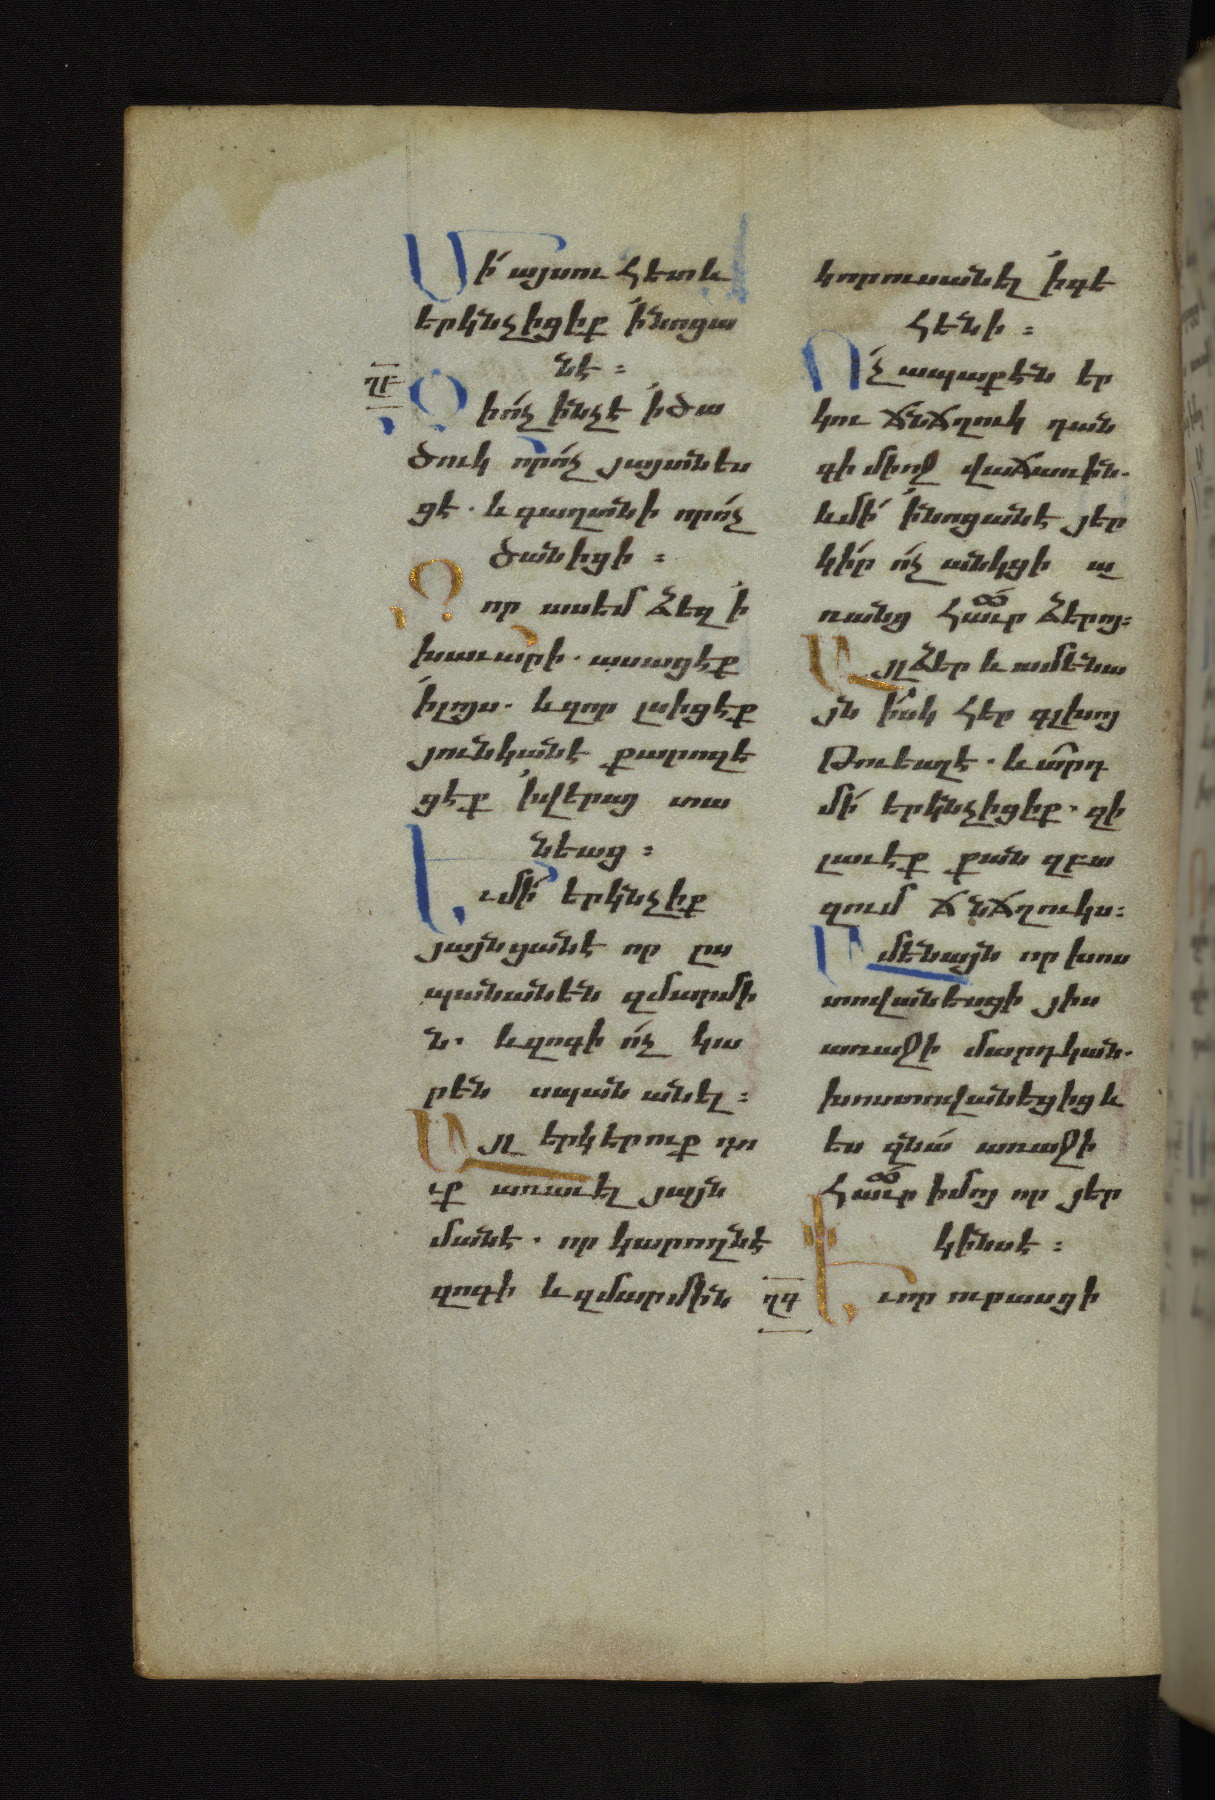 Մի՛ այսու հետև
երկնչիցիք ի՛նոցա
նէ ։
ղբ
Զի ո՛չ ինչ է ի՛ծա
ծուկ որ ո՛չ յայտնես
ցէ . և գաղտնի որ ո՛չ
ծանիցի ։
Զոր ասեմ ձեզ ի՛
խաւարի . ասացէք
ի՛լոյս . և զոր լսիցէք
յունկանէ քարոզե
ցէք ի՛վերայ տա
նեաց ։
Եւ մի՛ երկնչիք
յայնցանէ որ ըս
պանանեն զմարմի
ն . և զոգի ո՛չ կա
րեն սպանանել ։
Այլ երկերուք դո
ւք առաւել յայն
մանէ . որ կարողն է
զոգի և զմարմին
կորուսանել ի՛գե
հենի ։
Ո՛չ ապաքէն եր
կու ճնճղուկ դան
գի միոջ վաճառին .
և մի՛ ի՛նոցանէ յեր
կիր ո՛չ անկցի ա
ռանց հաւր ձերոյ ։
Այլ ձեր և ամենա
յն իսկ հեր գլխոյ
թուեալ է . և արդ
մի՛ երկնչիցիք . զի
լաւ էք քան զբա
զում ճնճղուկս ։
Ամենայն որ խոս
տովանեսցի յիս
առաջի մարդկան .
խոստովանեցից և
ես զնմա առաջի
հաւր իմոյ որ յեր
կինս է ։
ղգ
Եւ որ ուրասցի